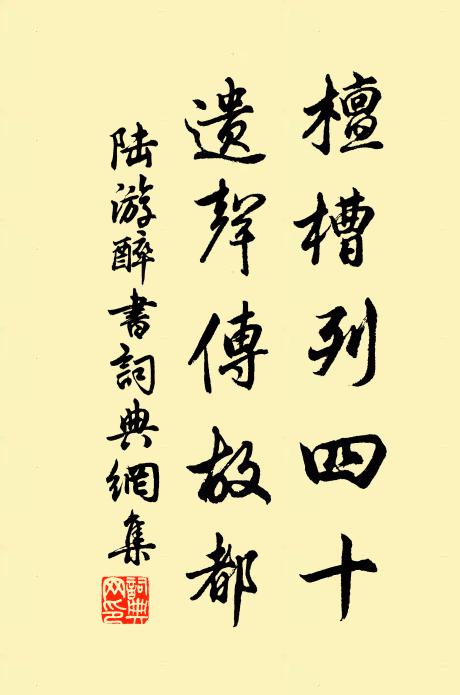 檀槽列四十
遺聲傳故都
陆游醉書詞典網集
詞典網印